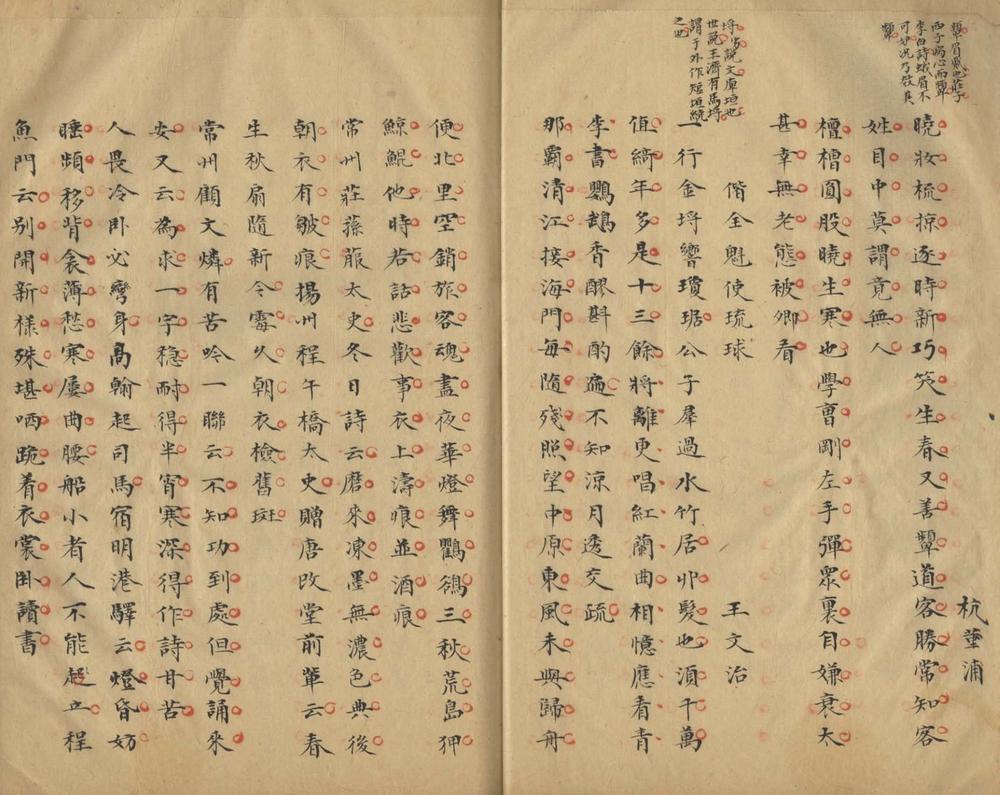 顰眉蹙也莊子
西子病心而顰
李白詩蛾眉不
可妬況乃效其
顰
杭堇浦
曉妝梳掠逐時新巧笑生春又善顰道客勝常知客
姓目中莫謂竟無人
檀槽圓股曉生寒也學曹剛左手彈眾裏自嫌衰太
甚幸無老態被卿看
偕全魁使琉球 王文治
埒說文庳垣也
世說王濟有馬埒
謂于外作短垣繞
之也
一行金埒響瓊琚公子羣過水竹居丱髮也須千萬
值綺年多是十三餘將離更唱紅蘭曲相憶應看青
李書鸚鵡香醪斟酌遍不知涼月透交疏
那霸清江接海門每隨殘照望中原東風未與歸舟
便北里空銷旅客魂盡夜華燈舞鸜鵒三秋荒島狎
鯨鯤他時若話悲歡事衣上濤痕並酒痕
常州莊蓀菔太史冬日詩云磨來凍墨無濃色典後
朝衣有皺痕揚州程午橋太史贈唐改堂前輩云春
生秋扇隨新令霉久朝衣檢舊斑
常州顧文燐有苦吟一聯云不知功到處但覺誦來
安又云為求一字穩耐得半宵寒深得作詩甘苦
人畏冷卧必彎身高翰起司馬宿明港驛云燈昏妨
睡頻移背衾薄愁寒屢曲腰船小者人不能起立程
魚門云別開新樣殊堪哂跪着衣裳卧讀書